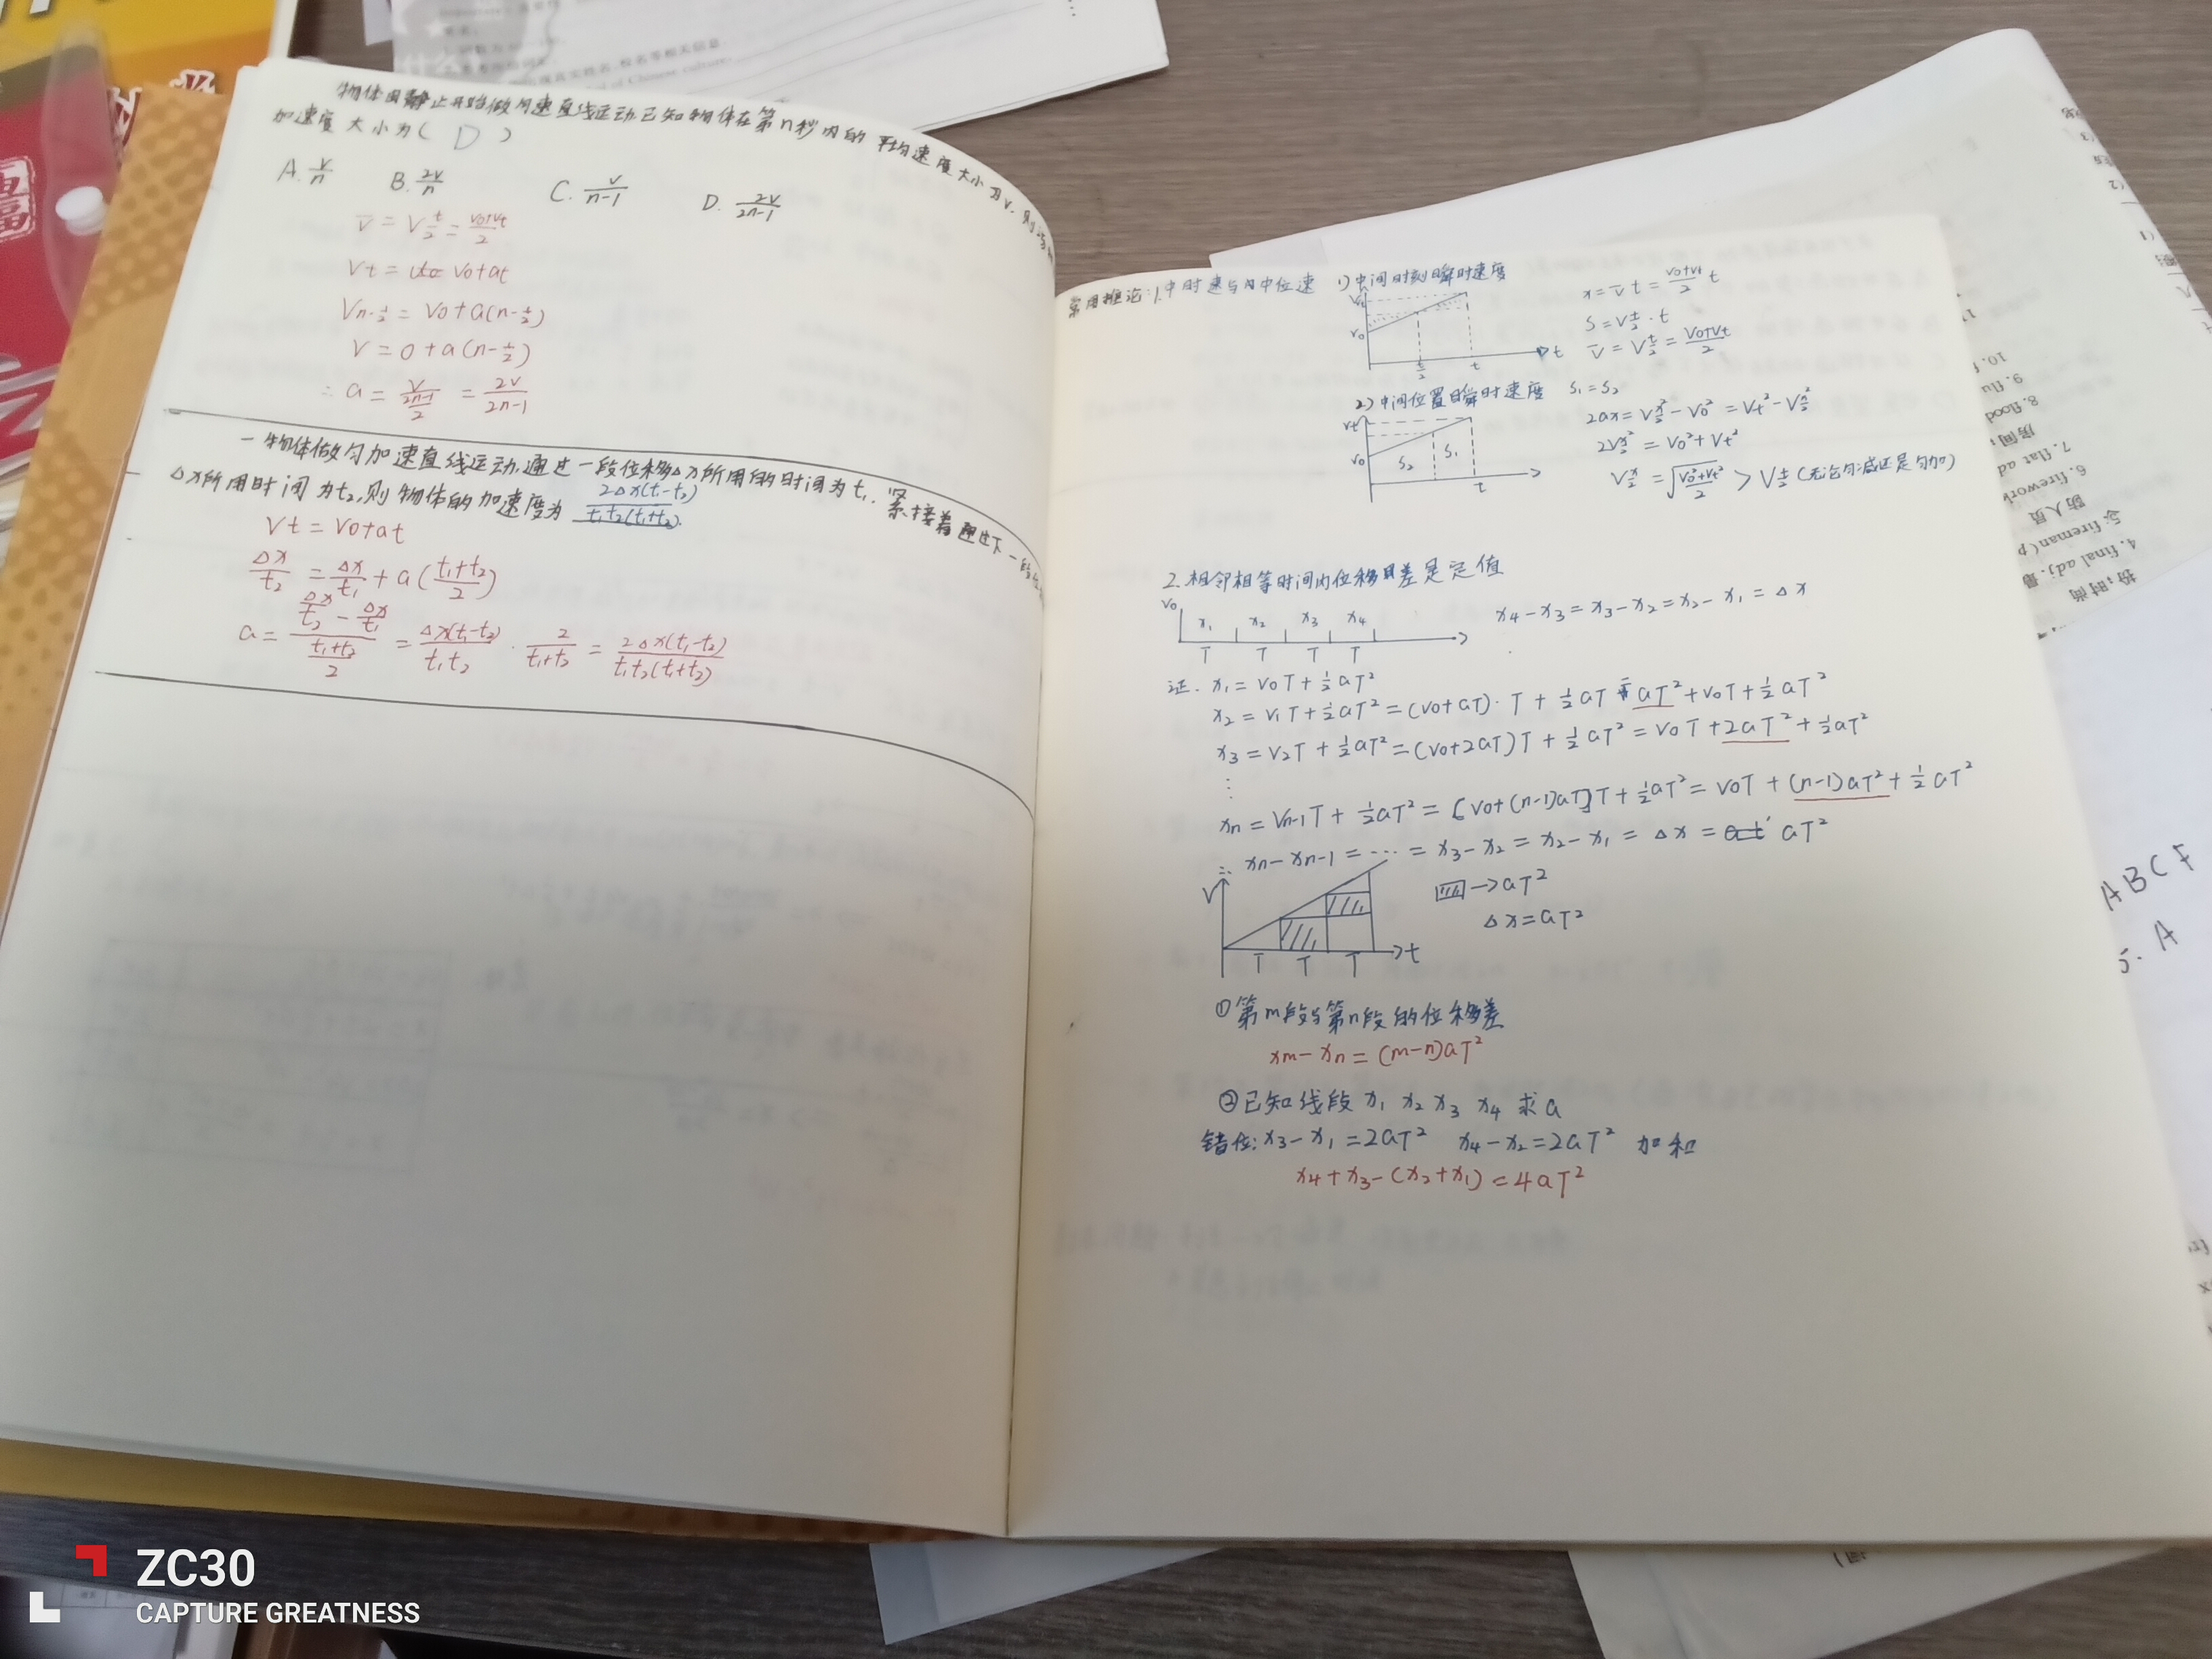 物体由静止开始做匀速直线运动.已知物体在第n秒内的平均速度大小为v.则
加速度大小为( D )
A. v/n B. 2v/n C. v/(n-1) D. 2v/(2n-1)
v̄ = V t/2 = (v0+vt)/2
Vt = v0+at
Vn-½ = V0+a(n-½)
V = 0+a(n-½)
∴ a = V/((2n-1)/2) = 2V/(2n-1)
一物体做匀加速直线运动,通过一段位移Δx所用的时间为t₁.紧接着通过下一段位
Δx所用时间为t₂,则物体的加速度为 2Δx(t₁-t₂)/(t₁t₂(t₁+t₂)).
Vt = V0+at
Δx/t₂ = Δx/t₁ + a((t₁+t₂)/2)
a = (Δx/t₂ - Δx/t₁)/((t₁+t₂)/2) = Δx(t₁-t₂)/(t₁t₂) · 2/(t₁+t₂) = 2Δx(t₁-t₂)/(t₁t₂(t₁+t₂))
常用推论:1.中时速与中位速 1)中间时刻瞬时速度
x = v̄t = (v0+vt)/2 t
S = V t/2 · t
v̄ = V t/2 = (V0+Vt)/2
vt
v0
t/2 t t
2)中间位置瞬时速度 S₁=S₂
2ax = V x/2² - V0² = Vt² - V x/2²
2V x/2² = V0²+Vt²
V x/2 = √((V0²+Vt²)/2) > V t/2 (无论匀减还是匀加)
vt
v0
S₂ S₁
t
2.相邻相等时间内位移差是定值
V0 x₁ x₂ x₃ x₄
T T T T
x₄-x₃=x₃-x₂=x₂-x₁=Δx
证. x₁=V0T+½aT²
x₂=V₁T+½aT²=(V0+aT)·T+½aT=aT²+V0T+½aT²
x₃=V₂T+½aT²=(V0+2aT)T+½aT²=V0T+2aT²+½aT²
⋮
xn=Vn-1T+½aT²=[V0+(n-1)aT]T+½aT²=V0T+(n-1)aT²+½aT²
∴ xn-xn-1=…=x₃-x₂=x₂-x₁=Δx=aT²
V
→aT²
Δx=aT²
t
T T T
①第m段与第n段的位移差
xm-xn=(m-n)aT²
②已知线段 x₁ x₂ x₃ x₄ 求a
错位:x₃-x₁=2aT² x₄-x₂=2aT² 加和
x₄+x₃-(x₂+x₁)=4aT²
10. f
9. flu
8. flood
房间;
7. flat ad
6. firework
防人员
5. fireman (p
4. final adj. 最
ABCF
5. A
ZC30
CAPTURE GREATNESS